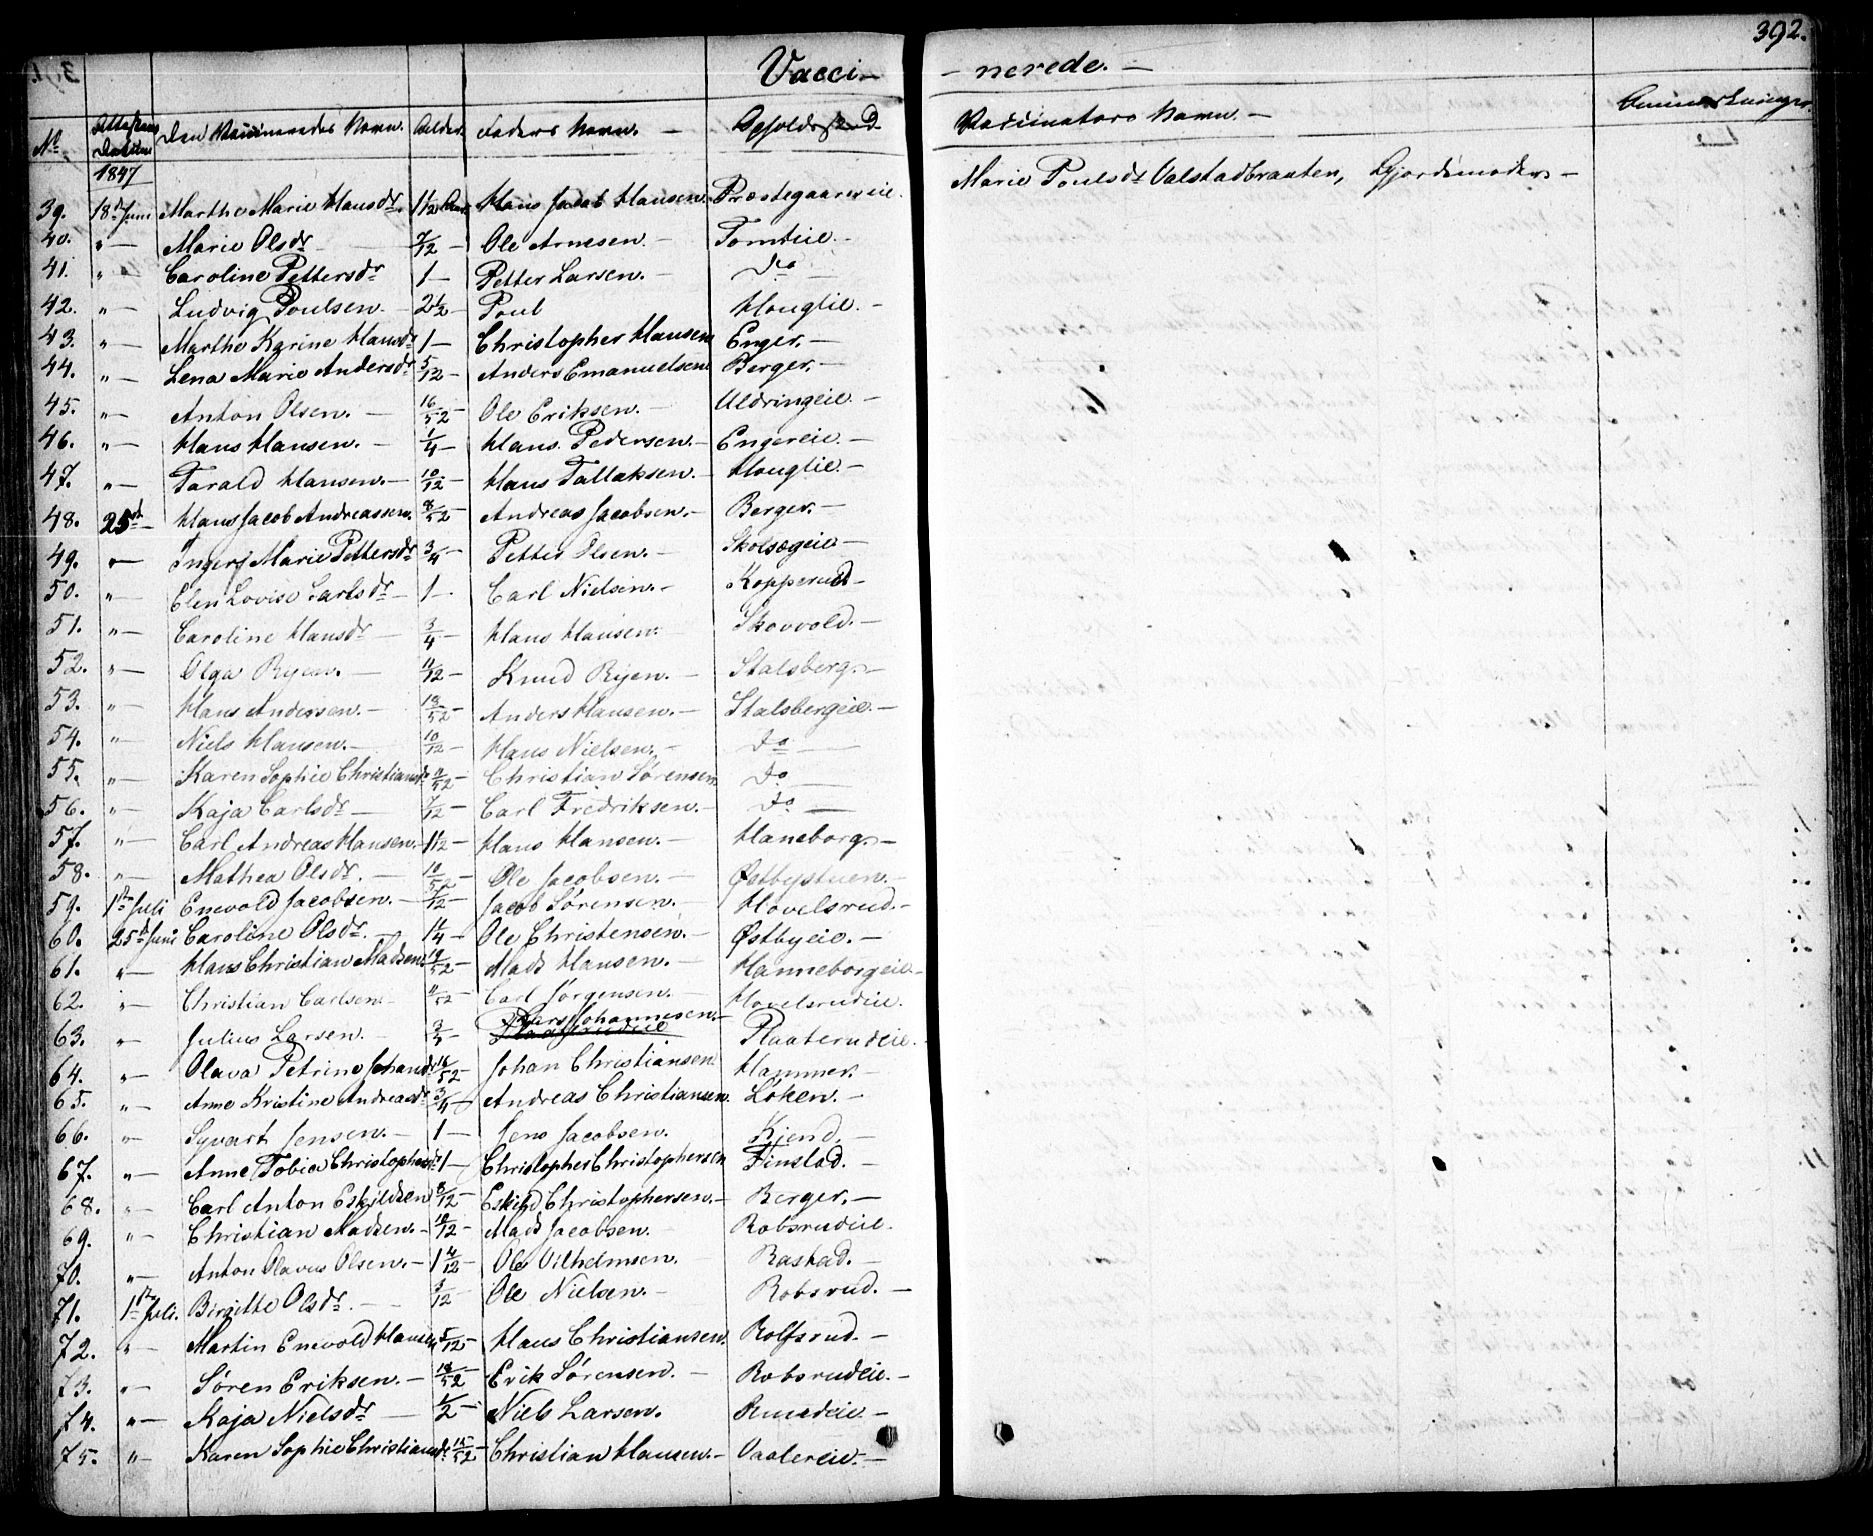 392.
Vacci- -nerede. -
No. Attestens Datum Den Vaccineredes Navn. Alder. Faders Navn. - Opholdssted Vaccinators Navn. - Anmærkninger.
1847
39. 18de Juni Marthe Marie Hansdr. 1 1/2 Aar Hans Jacob Hansen. Præstegaardseie. Marie Poulsdr Valstadbraaten, Gjordemoder. -
40. " - Marie Olsdr - 7/12 - Ole Arnesen. - Tomteie. -
41. " - Caroline Pettersdr 1 - Petter Larsen. - Do -
42. " - Ludvig Poulsen. - 2 1/2 - Poul Hougeie. -
43. " - Marthe Karine Hansdr 1 - Christopher Hansen Enger. -
44. " - Lena Marie Andersdr 5/12 - Anders Emanuelsen Berger. -
45. " - Anton Olsen. - 16/52 - Ole Eriksen. - Uldringeie. -
46. " - Hans Hansen. - 1/4 - Hans Pedersen. - Engereie. -
47. " - Tarald Hansen. - 10/12 - Hans Tallaksen. - Hougeie. -
48. 25de - Hans Jacob Andreassen. 8/52 - Andreas Jacobsen. - Berger. -
49. " - Inger Marie Pettersdr 3/4 - Petter Olsen. - Skolsægeie -
50. " - Elen Lovise Carlsdr - 1 - Carl Nielsen. - Kopperud -
51. " - Caroline Hansdr - 3/4 - Hans Hansen. Skovvold. -
52. " - Olga Ryen. - 11/12 - Knud Ryen. - Stalsberg. -
53. " - Hans Andersen. - 18/52 - Anders Hansen. - Stalsbergeie. -
54. " - Niels Hansen. - 10/12 - Hans Nielsen. - Do -
55. " - Karen Sophie Christiansdr 11/52 - Christian Sørensen Do -
56. " - Kaja Carlsdr - 7/12 - Carl Fredriksen. - Do -
57. " - Carl Andreas Hansen. - 1 1/2 - Hans Hansen. - Haneborg. -
58. " - Mathea Olsdr. - 10/52 - Ole Jacobsen. - Østbystuen. -
59. 1ste Juli Enevold Jacobsen. - /12 - Jacob Sørensen. - Hovelsrud. -
60. 25de Juni Caroline Olsdr. - 1 1/4 - Ole Christensen. - Østbyeie. -
61. " - Hans Christian Madsen 18/52 - Mads Hansen. - Hanneborgeie. -
62. " - Christian Carlsen - 11/52 - Carl Jørgensen. - Hovelsrudeie.
63. " - Julius Larsen. - Lars Johannesen. - Plaaterudeie.
64. " - Olava Petrine Johansdr 16/52 - Johan Christiansen Hammer. -
65. " - Anne Kristine Andreasdr 3/4 - Andreas Christiansen. Løken. -
66. " - Syvart Jensen. - 1 - Jens Jacobsen. Kjend. -
67. " - Anne Tobia Christophersdr 1 - Christopher Christophersen Finstad. -
68. " - Carl Anton Eskildsen 8/12 - Eskild Christophersen. - Berger. -
69. " - Christian Madsen. - 10/12 - Mads Jacobsen. Robsrudeie.
70. " - Anton Olavus Olsen. - 1 4/12 - Ole Vilhelmsen. Rastad. -
71. 1ste Juli. Birgitte Olsdr. - 3/12 - Ole Nielsen. - Robsrud. -
72. " - Martin Enevold Hansen 5/12 - Hans Christiansen. Rolfsrud. -
73. " - Søren Eriksen. - 18/52 - Erik Sørensen. - Robsrudeie. -
74. " - Kaja Nielsdr - 1/2 - Niels Larsen. Rudeie. -
75. " - Karen Sophie Christiansdr 15/52 - Christian Hansen. - Vaalereie. -